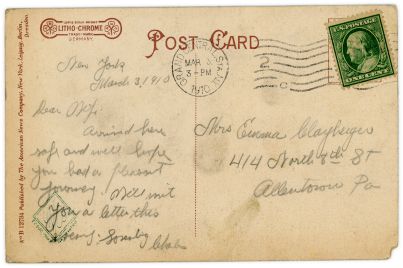 LITHO-CHROME
TRADE MARK
GERMANY.
POST CARD
GRAND CENTRAL STA. N.Y.
MAR 3
3-PM
1910
2
C
U.S. POSTAGE
ONE CENT
New York
March 3/1910
Dear
Arrived here
safe and well hope
you had a pleasant
journey. Will writ
you a letter this
evening.
Mrs Emma Clayberger
414 North 8th St
Allentown Pa
Published by The American News Company, New York, Leipzig, Berlin, Dresden.